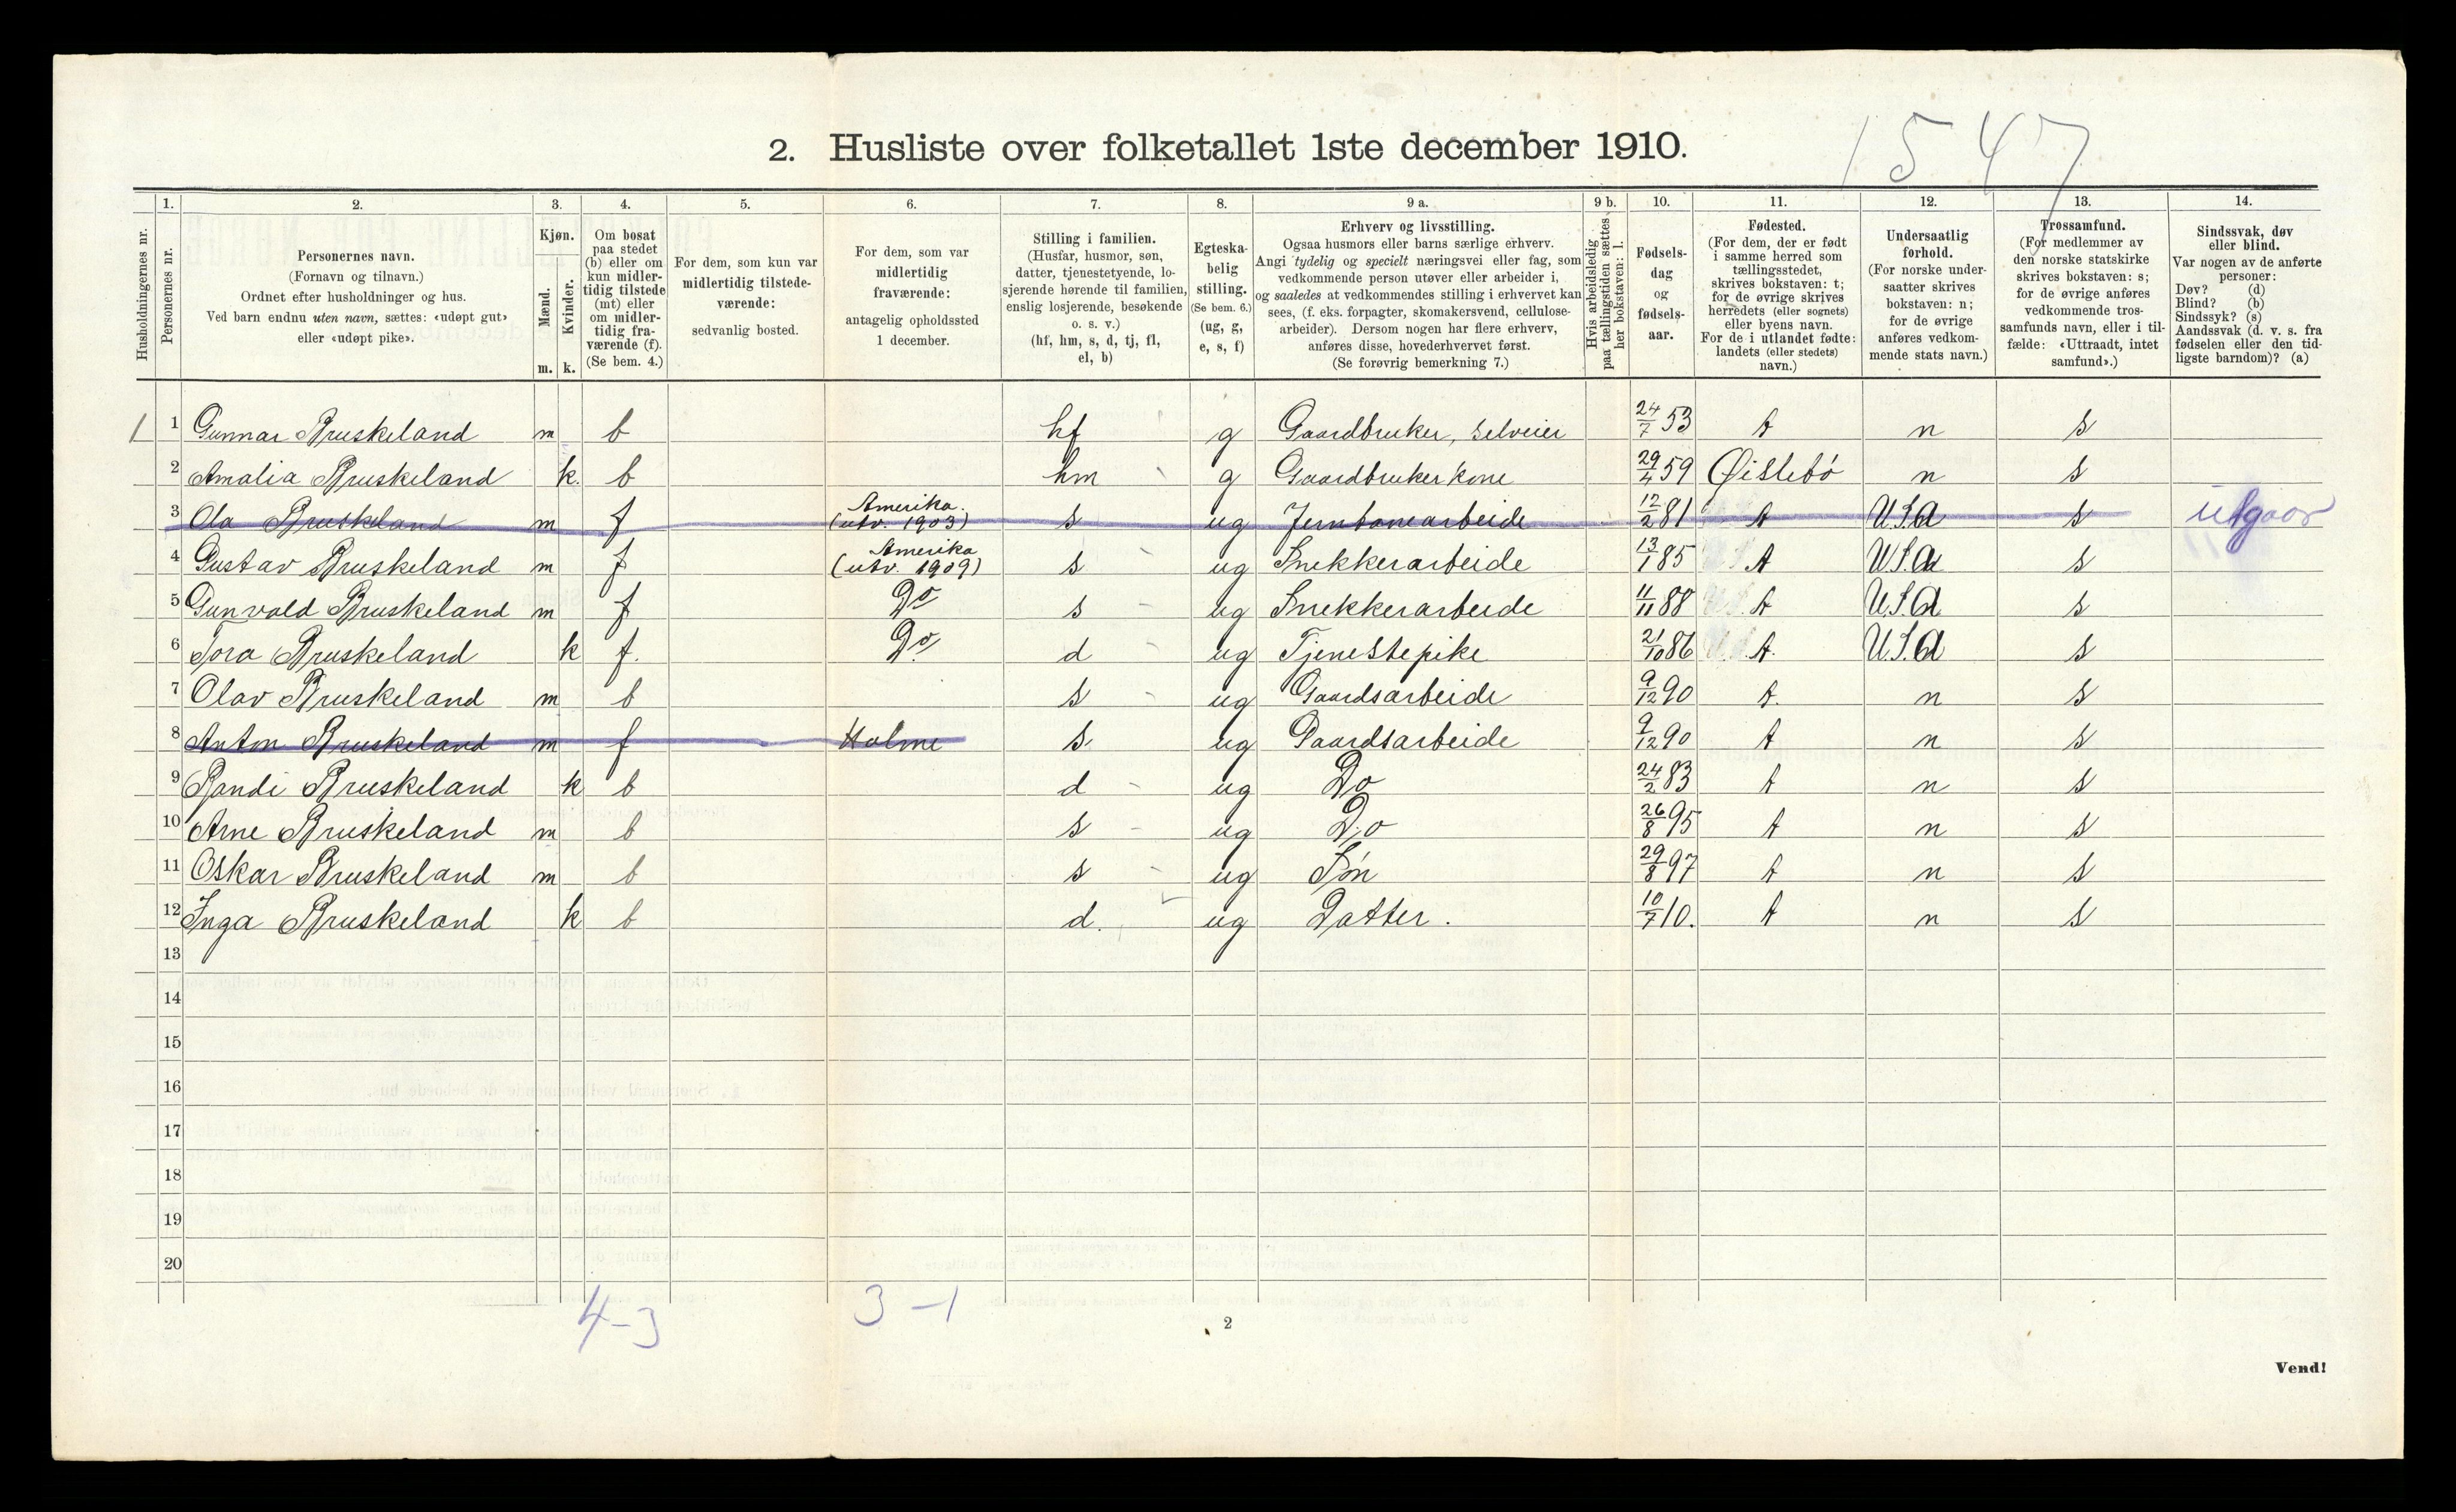 1547
2. Husliste over folketallet 1ste december 1910.
Husholdningernes nr.
1. Personernes nr.
2. Personernes navn.
(Fornavn og tilnavn.)
Ordnet efter husholdninger og hus.
Ved barn endnu uten navn, sættes: «udøpt gut»
eller «udøpt pike».
3. Kjøn.
Mænd. Kvinder.
m. k.
4. Om bosat
paa stedet
(b) eller om
kun midler-
tidig tilstede
(mt) eller
om midler-
tidig fra-
værende (f).
(Se bem. 4.)
5. For dem, som kun var
midlertidig tilstede-
værende:
sedvanlig bosted.
6. For dem, som var
midlertidig
fraværende:
antagelig opholdssted
1 december.
7. Stilling i familien.
(Husfar, husmor, søn,
datter, tjenestetyende, lo-
sjerende hørende til familien,
enslig losjerende, besøkende
o. s. v.)
(hf, hm, s, d, tj, fl,
el, b)
8. Egteska-
belig
stilling.
(Se bem. 6.)
(ug, g,
e, s, f)
9 a. Erhverv og livsstilling.
Ogsaa husmors eller barns særlige erhverv.
Angi tydelig og specielt næringsvei eller fag, som
vedkommende person utøver eller arbeider i,
og saaledes at vedkommendes stilling i erhvervet kan
sees, (f. eks. forpagter, skomakersvend, cellulose-
arbeider). Dersom nogen har flere erhverv,
anføres disse, hovederhvervet først.
(Se forøvrig bemerkning 7.)
9 b. Hvis arbeidsledig
paa tællingstiden sættes
her bokstaven: l.
10. Fødsels-
dag
og
fødsels-
aar.
11. Fødested.
(For dem, der er født
i samme herred som
tællingsstedet,
skrives bokstaven: t;
for de øvrige skrives
herredets (eller sognets)
eller byens navn.
For de i utlandet fødte:
landets (eller stedets)
navn.)
12. Undersaatlig
forhold.
(For norske under-
saatter skrives
bokstaven: n;
for de øvrige
anføres vedkom-
mende stats navn.)
13. Trossamfund.
(For medlemmer av
den norske statskirke
skrives bokstaven: s;
for de øvrige anføres
vedkommende tros-
samfunds navn, eller i til-
fælde: «Uttraadt, intet
samfund».)
14. Sindssvak, døv
eller blind.
Var nogen av de anførte
personer:
Døv? (d)
Blind? (b)
Sindssyk? (s)
Aandssvak (d. v. s. fra
fødselen eller den tid-
ligste barndom)? (a)
1 1 Gunnar Bruskeland m b hf g Gaardbruker, selveier 24/7 53 t n s
2 Amalia Bruskeland k. b hm g Gaardbruker kone 29/4 59 Øislebö n s
3 Ola Bruskeland m f Amerika. (utv. 1903) s ug Jernbanearbeide 12/2 81 t U.S.A s utgaar
4 Gustav Bruskeland m f Amerika (utv. 1909) s ug Snekkerarbeide 13/1 85 t U.S.A s
5 Gunvald Bruskeland m f Do s ug Snekkerarbeide 11/11 88 t U.S.A s
6 Tora Bruskeland k f. Do d ug Tjenestepike 21/10 86 t. U.S.A s
7 Olav Bruskeland m b s ug Gaardsarbeide 9/12 90 t. n s
8 Anton Bruskeland m f Holme s. ug Gaardsarbeide 9/12 90 t n s
9 Randi Bruskeland k b d ug Do 24/2 83 t n s
10 Arne Bruskeland m b s ug Do 26/8 95 t n s
11 Oskar Bruskeland m b s ug Søn 29/8 97 t n s
12 Inga Bruskeland k b d. ug Datter. 10/7 10. t n s
13
14
15
16
17
18
19
20
4-3 3-1
2
Vend!